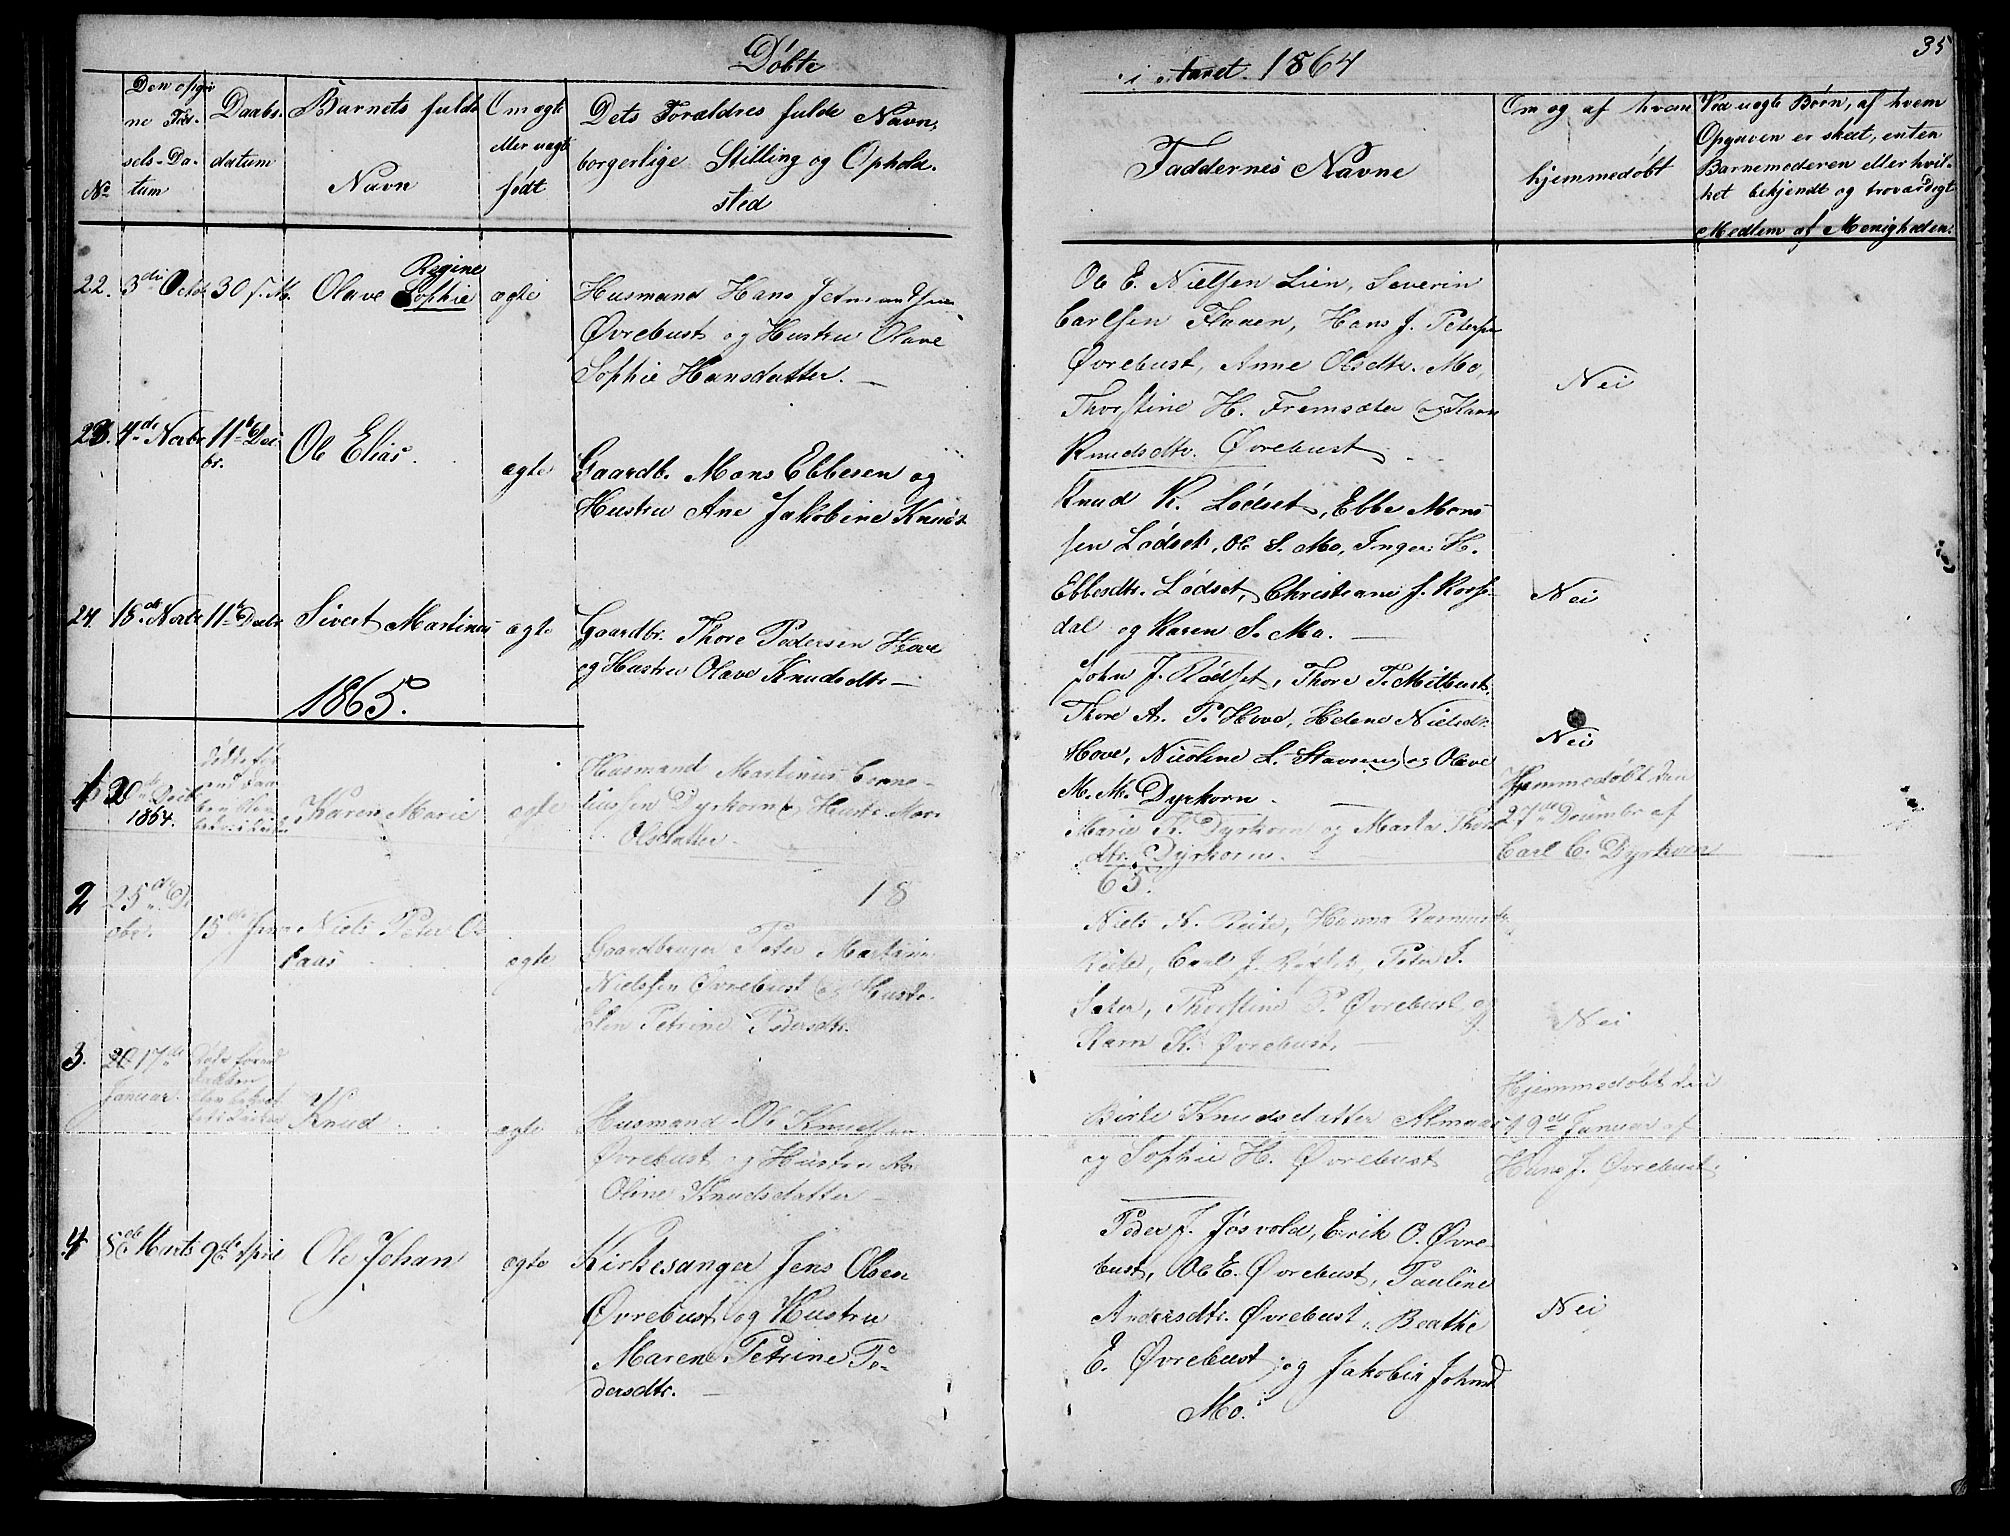 Døbte
i Aaret 1864
35
No
Den opgiv-
ne Fød-
sels-Da-
tum
Daabs-
datum
Barnets fulde
Navn
Om ægte
eller uægte
født
Dets Forældres fulde Navn,
borgerlige Stilling og Opholds-
sted
Faddernes Navne
Om og af hvem
hjemmedøbt
Ved uægte Børn, af hvem
Opgaven er skeet, enten
Barnemoderen eller hvil-
ket bekjendt og troværdigt
Medlem af Menigheden.
22. 3die Octbr 30 s. M. Olave Regine
Sophie
ægte
Husmand Hans
Øvrebust og Hustru Olave
Sophie Hansdatter. —
Ole E. Nielsen Lien, Severin
Carlsen Hauen, Hans J. Petersen
Øvrebust, Anne Olsdtr. Mo,
Thorstine H. Fremsæter og Karn
Knudsdtr. Øvrebust
Nei
23. 4de Novbr 11te Dec
br.
Ole Elias
ægte
Gaardb. Mons Ebbesen og
Hustru Ane Jakobine Knuds
Knud K. Lødset, Ebbe Mons
sen Lødset, Ole S. Mo, Inger H.
Ebbesdtr. Lødset, Christiane J. Kors-
dal og Karen S. Mo. —
Nei
24. 18de Novbr 11te Decbr Sivert Martinus ægte
Gaardbr. Thore Pedersen Hove
og Hustru Olave Knudsdtr —
John J. Rødset, Thore T. Mitbust,
Thore A. P. Hove, Helene Nielsdtr
Hove, Nicoline L. Stavnes og Olave
M. M. Dyrkorn. —
Nei
1865.
1 20de Decbr
1864.
Karen Marie
ægte
Husmand Martinus Corne-
liussen Dyrkorn & Hustr. Mar.
Olsdatter.
Marie K. Dyrkorn og Marta Thors
dtr. Dyrkorn.
Hjemmedøbt den
27de Decembr af
Carl C. Dyrkorn
18
65.
2 25de De
cbr.
15de Janr Niels Peter O-
laus
ægte
Gaardbruger Peter Martinus
Nielssen Øvrebust og Hustr.
Elen Petrine Pedersdtr.
Niels N. Reite, Hanna Rasmusdtr
Reite, Carl J. Rødset, Peter J.
Sæter, Thorstine P. Øvrebust og
Karn K. Øvrebust. —
Nei
3. 20 17de
Januar.
Knud
ægte
Husmand Ole Knudsen
Øvrebust og Hustru An
Oline Knudsdatter —
Birte Knudsdatter Almaas
og Sophie H. Øvrebust
Hjemmedøbt den
19de Januar af
Hans J. Øvrebust.
4 5de Marts 9de April Ole Johan ægte
Kirkesanger Jens Olsen
Øvrebust og Hustru
Maren Petrine Pe-
dersdtr. —
Peder J. Jøsvold, Erik O. Øvre-
bust, Ole E. Øvrebust, Pauline
Andersdtr. Øvrebust, Beathe
E. Øvrebust og Jakobin Johnsd
Mo.
Nei